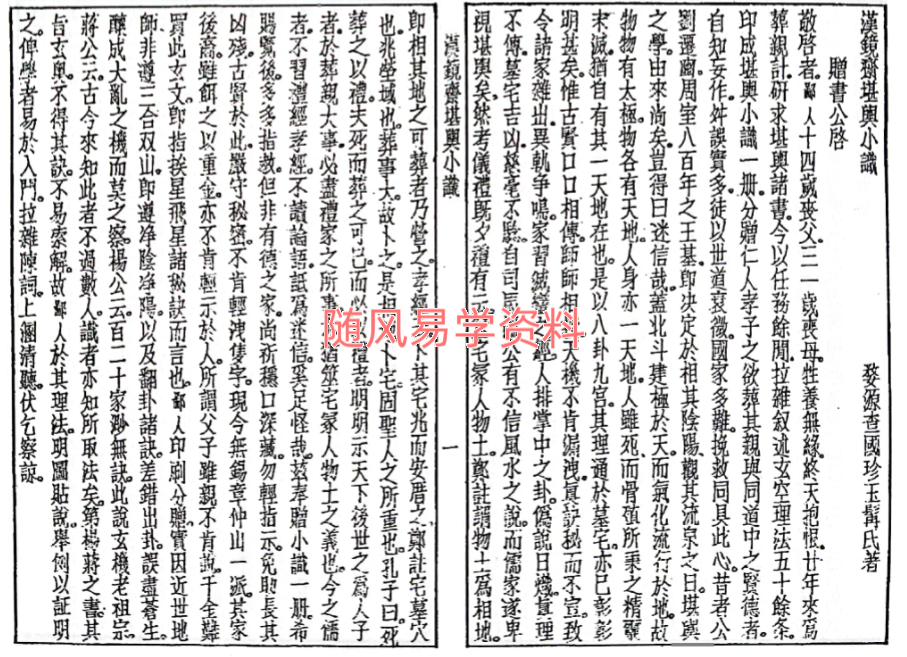 漢鏡齋堪輿小識　婺源查國珍玉髯氏著
贈書公啓
敬啓者鄙人十四歲喪父二一歲喪母牲養無緣終天抱恨廿年來爲
葬親計研求堪輿諸書今以任務餘閒拉雜叙述玄空理法五十餘条
印成堪輿小識一册分贈仁人孝子之欲葬其親與同道中之賢德者
自知妄作舛誤實多徒以世道衰微國家多難挽救同具此心昔者公
劉遷豳周室八百年之王基即決定於相其陰陽觀其流泉之日堪輿
之學由來尚矣豈得曰迷信哉蓋北斗建極於天而氣化流行於地故
物物有太極物各有天地人身亦一天地人雖死而骨殖所乘之精靈
未滅猶自有其一天地在也是以八卦九宮其理通於墓宅亦已彰彰
明甚矣惟古賢口口相傳師師相天機不肯漏洩真訣秘而不宣致
今諸家雜出異軌爭鳴家習滅蠻之經人排掌中之卦僞說日熾眞理
不傳墓宅吉凶毫不驗自司馬公有不信風水之說而儒家遂卑
視堪輿矣然考儀禮既夕禮有云宅冢人物土鄭註謂物土爲相地
漢鏡齋堪輿小識
一
即相其地之可葬者乃營之孝經卜其宅兆而安厝之鄭註宅墓穴
也兆塋域也葬事大故卜之是相卜宅固聖人之所重也孔子曰死
葬之以禮夫死而葬之可已而必禮者明明示天下後世之爲人子
者於葬親大事必盡禮家之所事猶筮宅冢人物土之義也今之儒
者不習禮經孝經不讀論語詆爲迷信奚足怪哉茲奉贈小識一册希
賜覽後多多指教但非有德之家尚祈穩口深藏勿輕指示免助長其
凶殘古賢於此嚴守秘密不肯輕洩隻字現今無錫章仲山一派其家
後裔雖餌之以重金亦不肯輕示於人所謂父子雖親不肯說千金難
買此玄文即指挨星飛星諸秘訣而言也鄙人印刷分贈實因近世地
師非遵三合双山即遵淨陰淨陽以及翻卦諸訣差錯出卦誤盡蒼生
釀成大亂之機而莫之察楊公云百二十家渺無訣此說玄機老祖宗
蔣公云古今來知此者不過數人識者亦知所取法矣第楊蔣之書其
旨玄奧不得其訣不易索解故鄙人於其理法明圖貼說舉例以証明
之俾學者易於入門拉雜陳詞上溷清聽伏乞察諒
随风易学资料